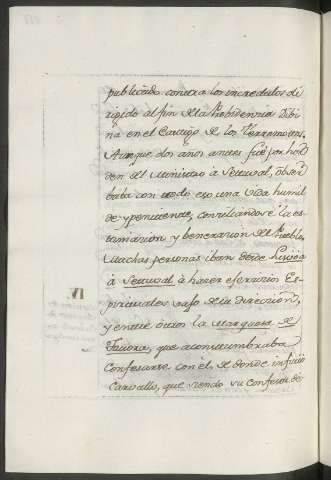 publicado contra los incredulos di
rigido al fin de la Probidencia Dibi
na en el Castigo de los Terremotos.
Aunque dos años antes fue por hor
den del Ministro a Setuval, obser
baba con todo eso una vida humil
de y penitente, conciliandose la es
timacion y beneracion del Pueblo.
Muchas personas iban desde Lisboa
IV.
à Setuval à hazer exercicios Es-
pirituales vaxo de su direccion,
y entre otros la Marquesa de
Tavora, que acostumbraba
Confesarse con èl, de donde infirio
Carvallo, que siendo su confesor de